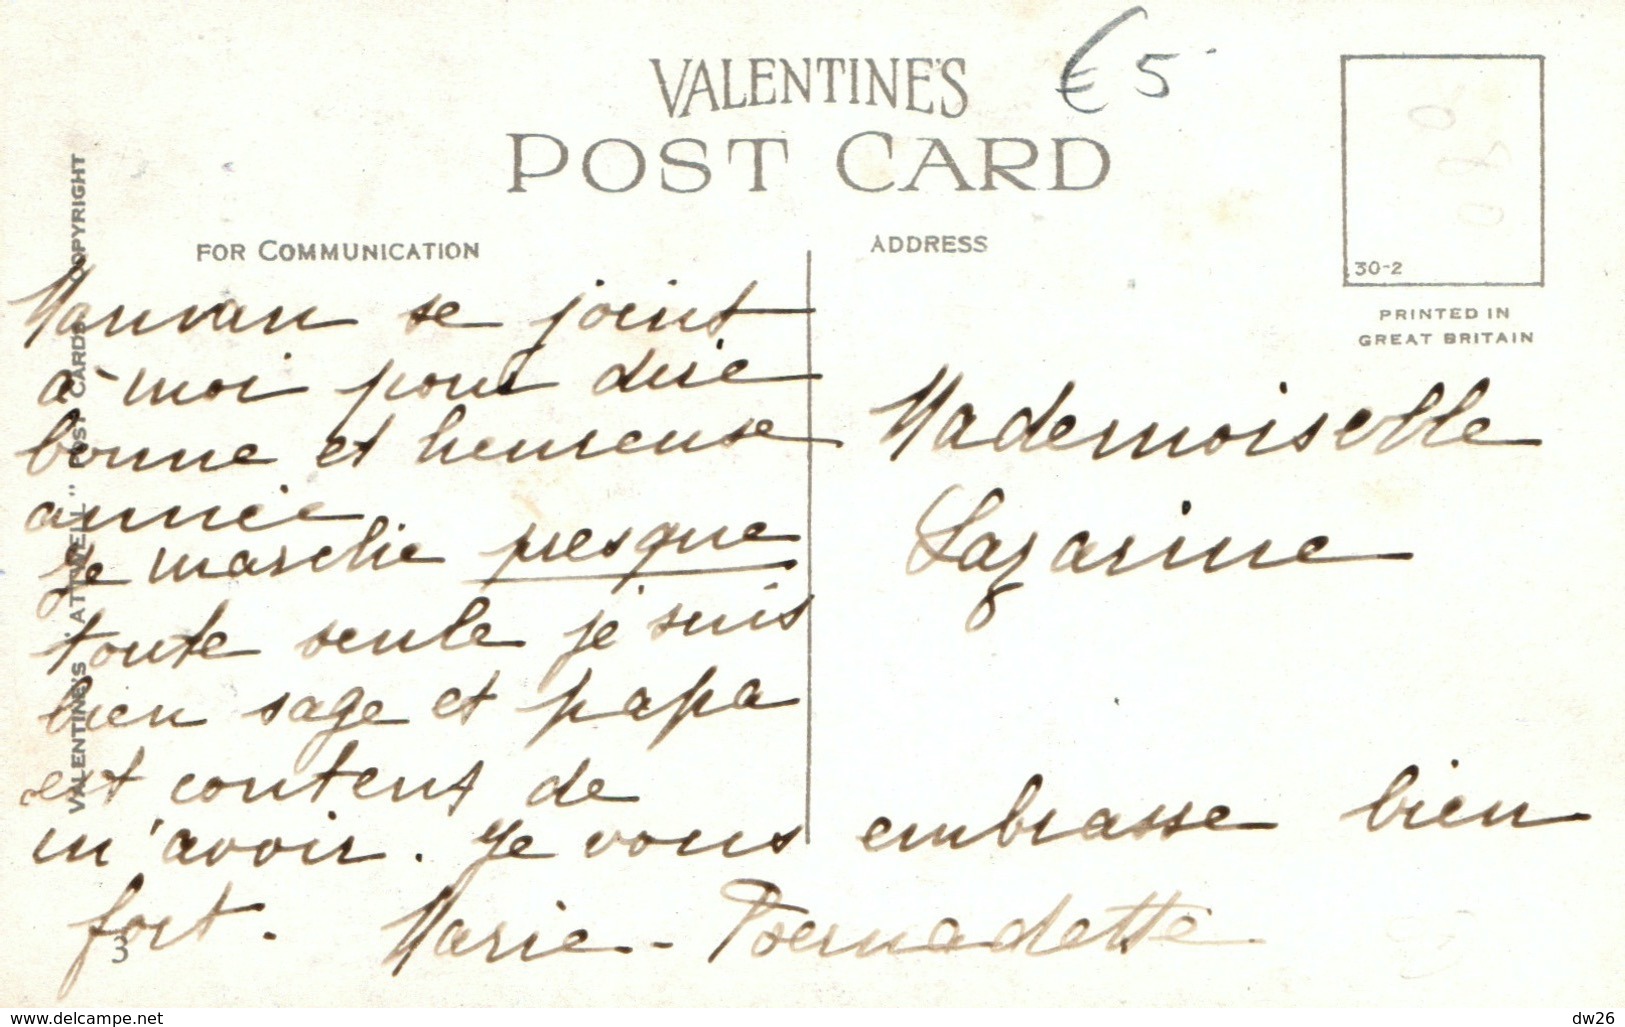 VALENTINE'S
€5
POST CARD
FOR COMMUNICATION
ADDRESS
30-2
PRINTED IN
GREAT BRITAIN
VALENTINE'S "ATTWELL" POST CARDS COPYRIGHT
Maman se joint
à moi pour dire
bonne et heureuse
année
Je marche presque
toute seule je suis
bien sage et papa
est content de
m'avoir. Je vous embrasse bien
fort. Marie-Bernadette
Mademoiselle
Lazarine
3
www.delcampe.net
dw26